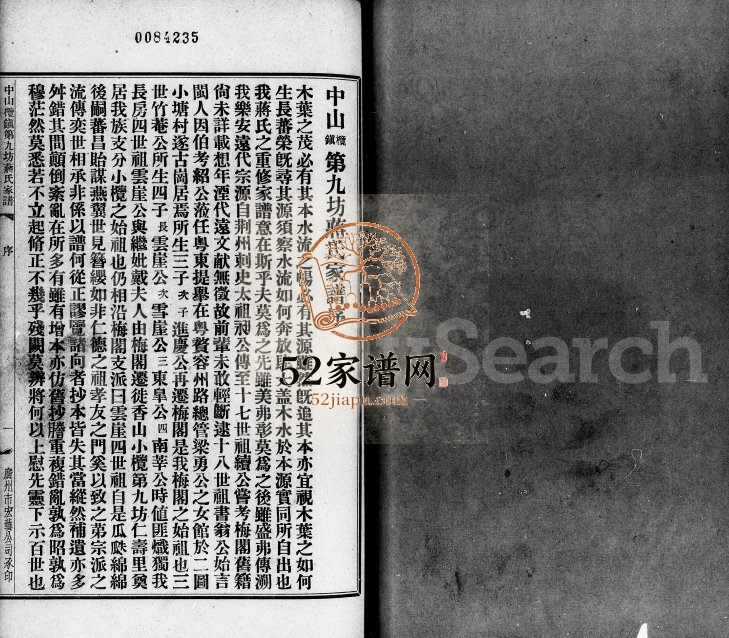 0084235
中山欖鎮第九坊蔣氏家譜序
木葉之茂必有其本水流之暢必有其源雖然旣追其本亦宜視木葉之如何
生長蕃榮旣尋其源須察水流如何奔放蓋木水於本源實同所自出也
我蔣氏之重修家譜意在斯乎夫莫爲之先雖美弗彰莫爲之後雖盛弗傳溯
我樂安遠代宗源自荆州刺史太祖昶公傳至十七世祖續公嘗考梅閣舊籍
尙未詳載想年湮代遠文獻無徵故前輩未敢輕斷逮十八世祖書翁公始言
閩人因伯考紹公蒞任粤東提舉在粤贅容州路總管梁勇公之女館於二圖
小塘村遂古崗居焉所生三子次子進慶公再遷梅閣是我梅閣之始祖也三
世竹菴公所生四子長雲崖公次雪崖公三東臯公四南莘公時値匪熾獨我
長房四世祖雲崖公與繼妣戴夫人由梅閣遷徙香山小欖第九坊仁壽里奠
居我族支分小欖之始祖也仍相沿梅閣支派曰雲崖四世祖自是瓜瓞綿綿
後嗣蕃昌貽謀燕翼世見簪纓如非仁德之祖孝友之門奚以致之第宗派之
流傳奕世相承非係以譜何從正謬覽諸向者抄本皆失其當縱然補遺亦多
舛錯其間顚倒紊亂在所多有雖有增本亦仿舊抄謄重複錯亂孰爲昭孰爲
穆茫然莫悉若不立起脩正不幾乎殘闕莫辨將何以上慰先靈下示百世也
中山欖鎮第九坊蔣氏家譜
序
一
廣州市宏藝公司承印
52家谱网
52jiapu.com
Search